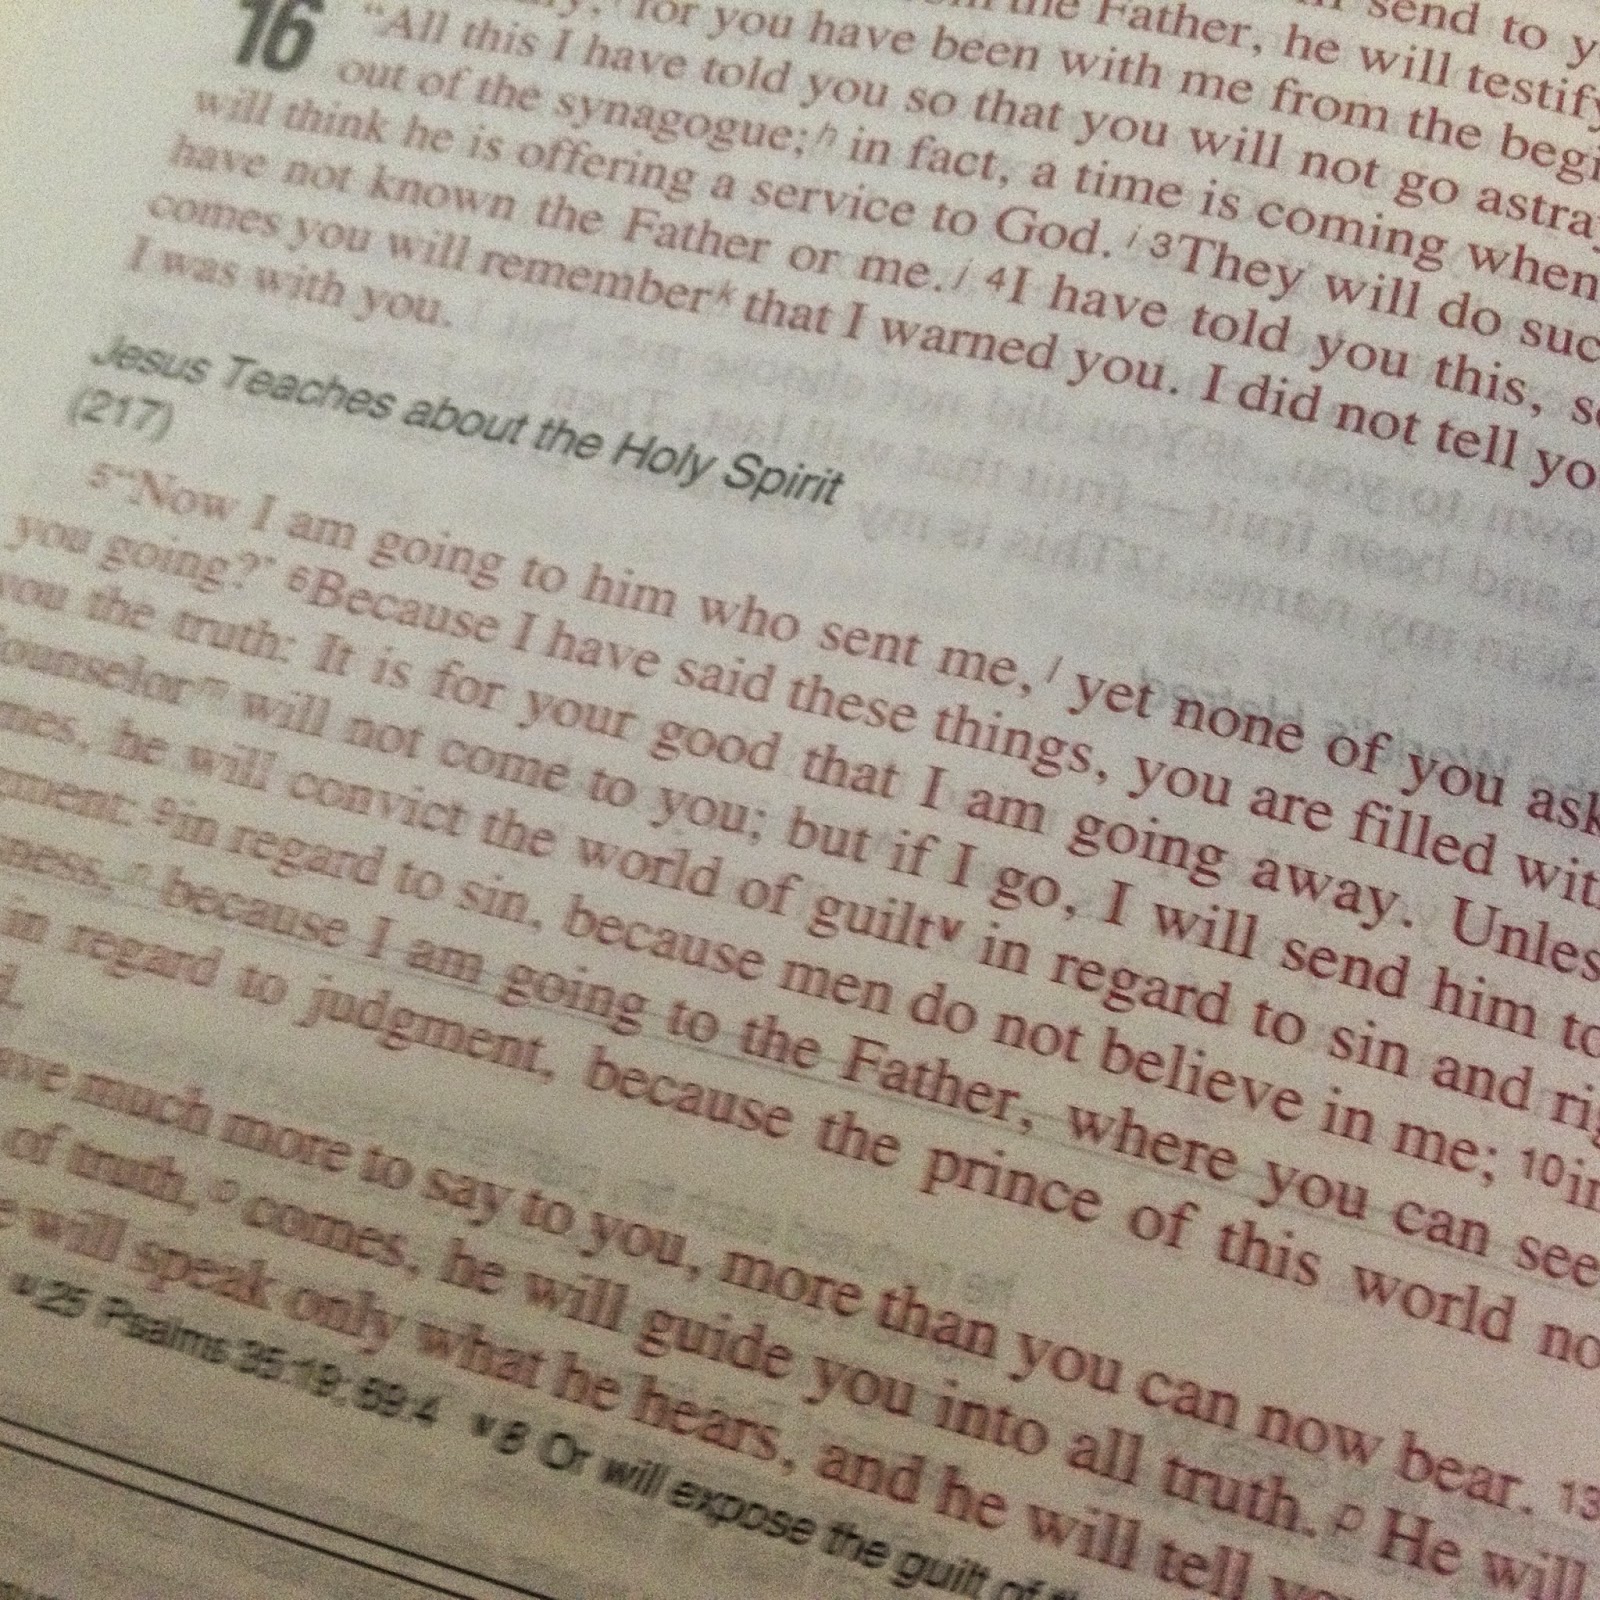 send to y
the Father, he will testify
for you have been with me from the begi
16 “All this I have told you so that you will not go astray
out of the synagogue;h in fact, a time is coming when
will think he is offering a service to God.i 3They will do suc
have not known the Father or me.j 4I have told you this, so
comes you will rememberk that I warned you. I did not tell yo
I was with you.
Jesus Teaches about the Holy Spirit
(217)
5“Now I am going to him who sent me,l yet none of you ask
you going?’ 6Because I have said these things, you are filled wit
you the truth: It is for your good that I am going away. Unles
ounselorm will not come to you; but if I go, I will send him to
mes, he will convict the world of guiltv in regard to sin and rig
ment: 9in regard to sin, because men do not believe in me; 10in
ness,n because I am going to the Father, where you can see
in regard to judgment, because the prince of this world no
d.
ave much more to say to you, more than you can now bear. 13
of truth,o comes, he will guide you into all truth.p He will
e will speak only what he hears, and he will tell yo
u25 Psalms 35:19; 69:4 v8 Or will expose the guilt of